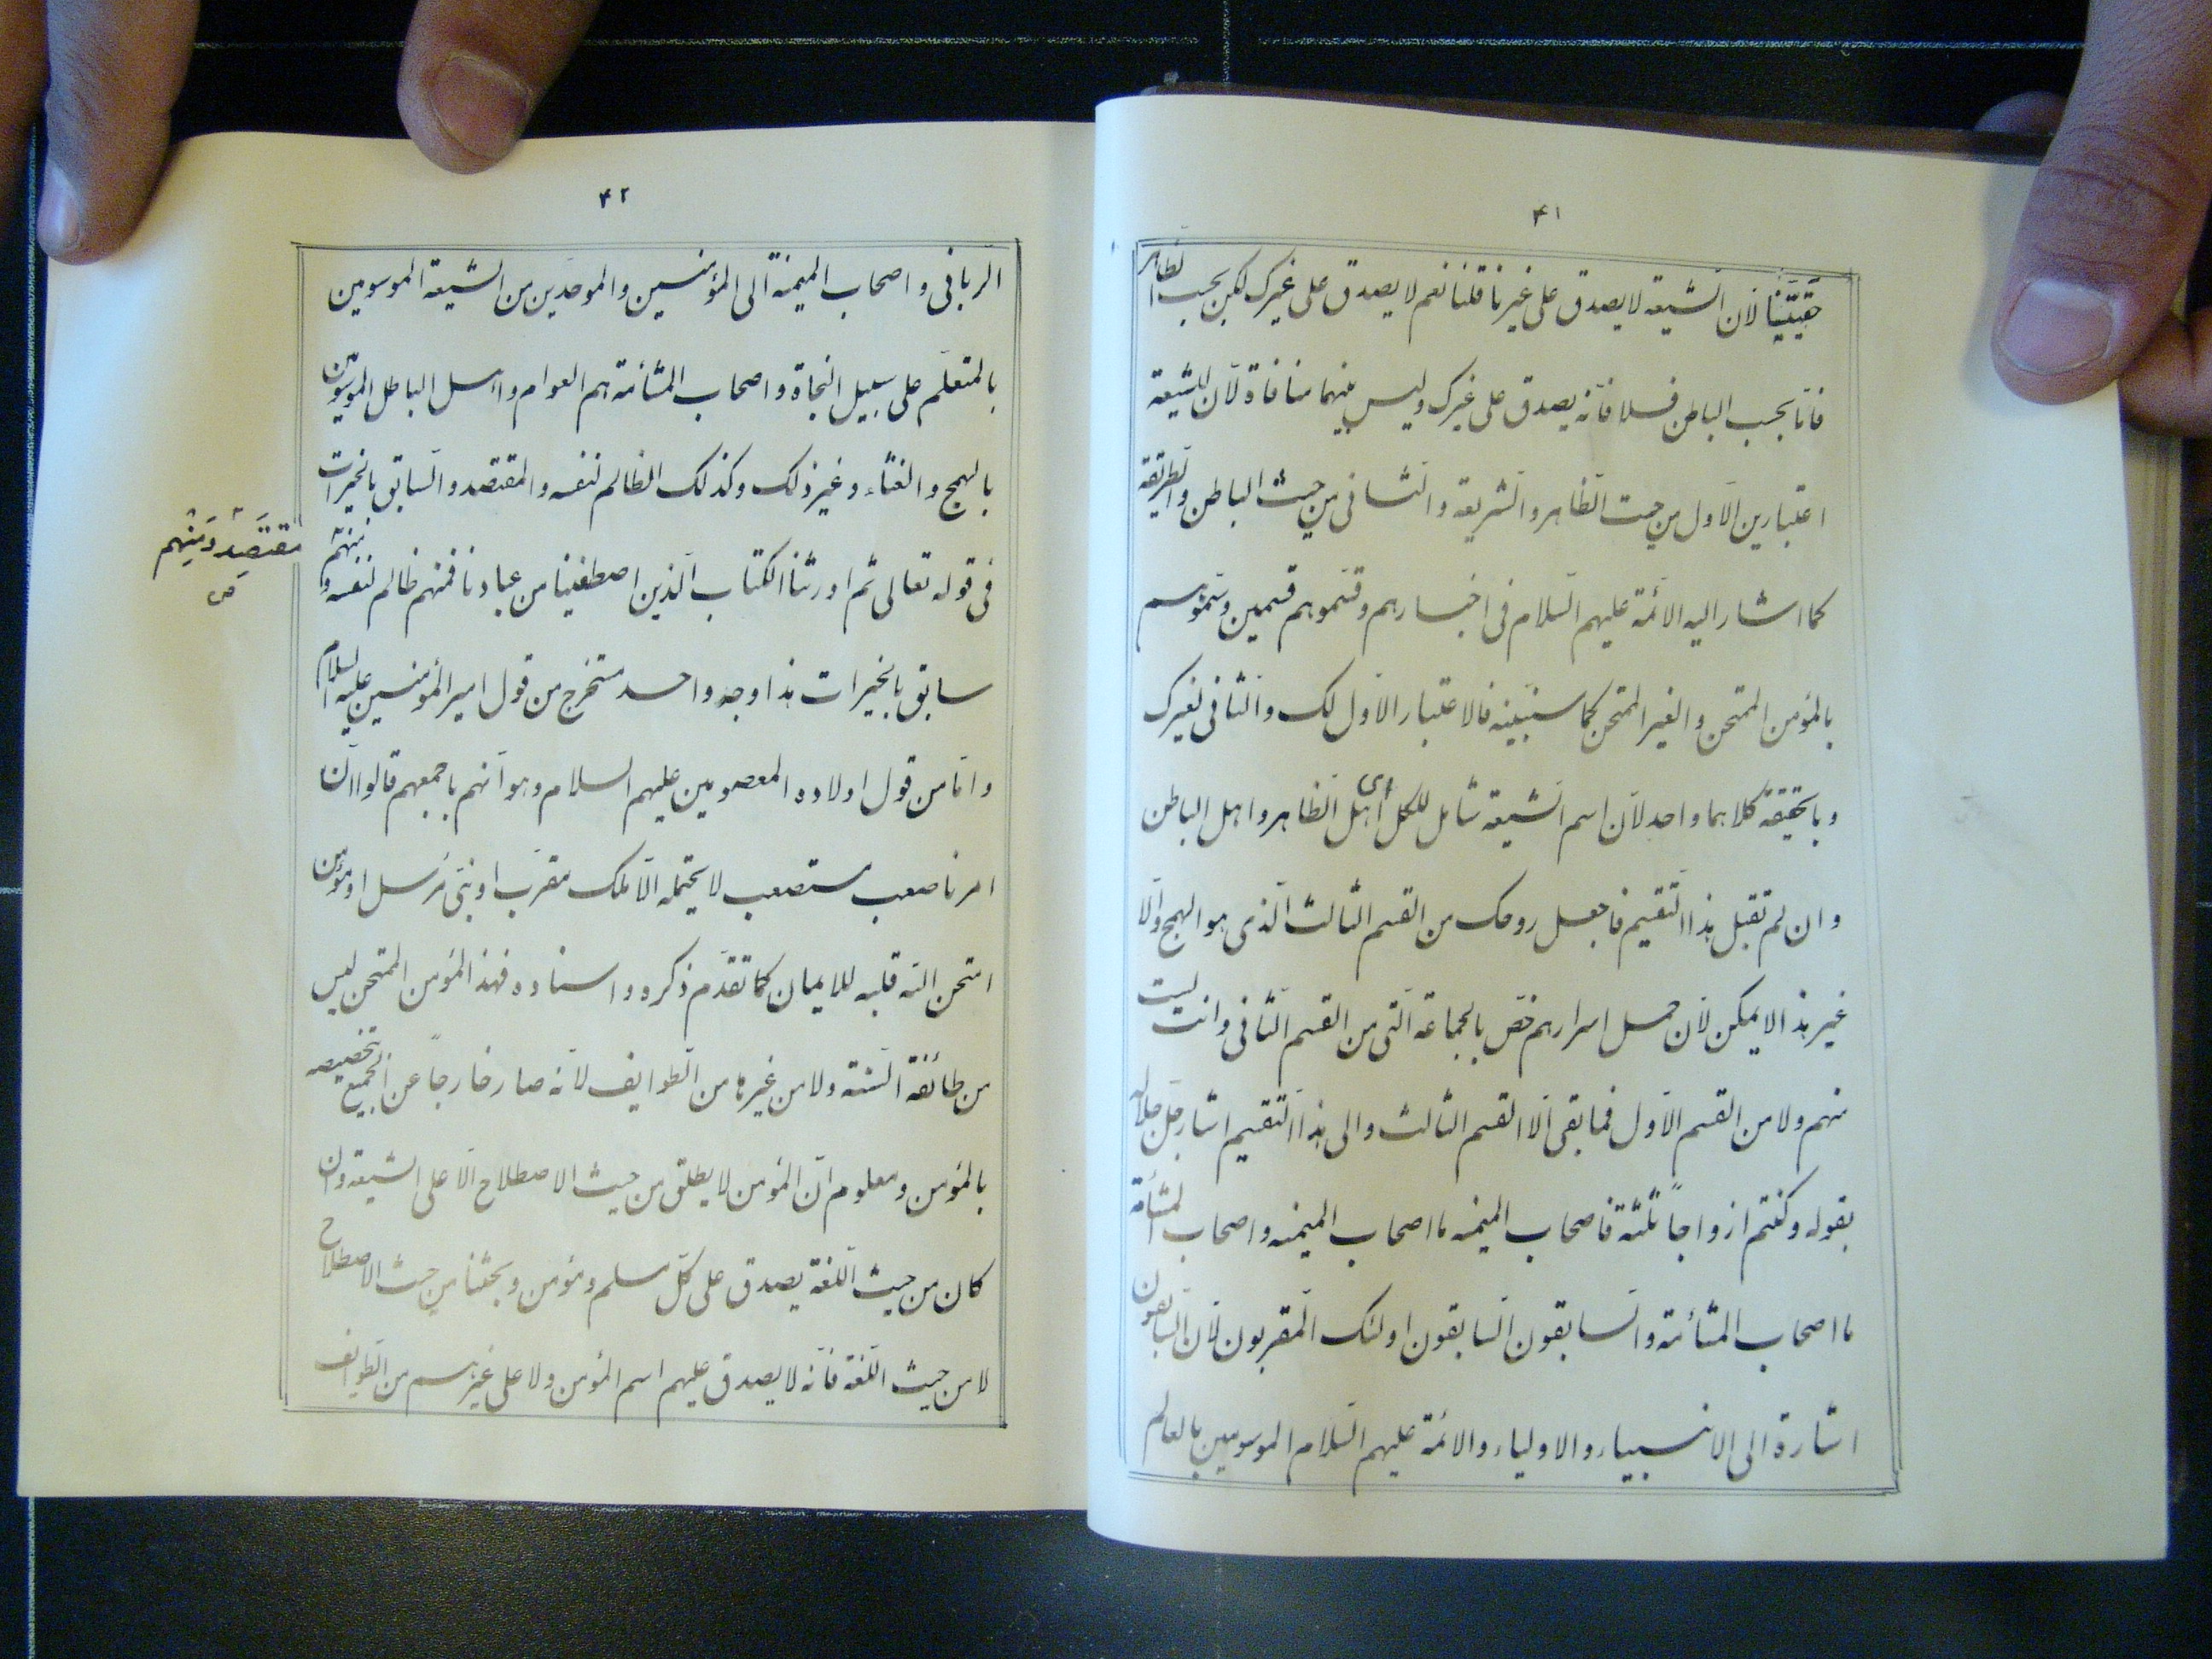 ۴۱
حقیقیّنا لانّ الشیعة لا یصدق علی غیرنا قلنا نعم لا یصدق علی غیرک لکن بحسب الظاهر
فامّا بحسب الباطن فلا فانّه یصدق علی غیرک و لیس بینهما منافاة لانّ للشیعة
اعتبارین الاوّل من حیث الظّاهر و الشّریعة و الثّانی من حیث الباطن و الطّریقة
کما اشار الیه الائمّة علیهم السّلام فی اخبارهم و قسّموهم قسمین و سمّوهم
بالمؤمن الممتحن و الغیر الممتحن کما سنبیّنه فالاعتبار الاوّل لک و الثّانی لغیرک
و بالحقیقة کلاهما واحد لانّ اسم الشّیعة شامل للکل ای اهل الظّاهر و اهل الباطن
و ان لم تقبل هذا التّقسیم فاجعل روحک من القسم الثالث الّذی هو الهمج و الّا
غیر هذا لا یمکن لانّ حمل اسرارهم خصّ بالجماعة الّتی من القسم الثّانی و انت لیت
منهم و لا من القسم الاوّل فما بقی الّا القسم الثالث و الی هذا التّقسیم اشار جلّ جلاله
بقوله و کنتم ازواجاً ثلثة فاصحاب المیمنه ما اصحاب المیمنه و اصحاب المشأمة
ما اصحاب المشأمة و السّابقون السّابقون اولئک المقربون لانّ السّابقون
اشارة الی الانبیاء و الاولیاء و الائمّة علیهم السّلام الموسومین بالعالم
۴۲
الرّبانی و اصحاب المیمنة الی المؤمنین و الموحّدین من الشیعة الموسومین
بالمتعلّم علی سبیل النجاة و اصحاب المشأمة هم العوام و اهل الباطل الموسومین
بالهمج و الغثاء و غیر ذلک و کذلک الظالم لنفسه و المقتصد و السّابق بالخیرات
فی قوله تعالی ثم اورثنا الکتاب الّذین اصطفینا من عبادنا فمنهم ظالم لنفسه و منهم
مُقتَصِدٌ وَمِنْهُم
ص
سابق بالخیرات هذا وجه واحد مستخرج من قول امیر المؤمنین علیه السلام
و امّا من قول اولاده المعصومین علیهم السلام و هو انّهم باجمعهم قالوا انّ
امرنا صعب مستصعب لا یحتمله الّا ملک مقرّب او نبیّ مرسل او مؤمن
امتحن اللّه قلبه للایمان کما تقدّم ذکره و اسناده فهذا المؤمن الممتحن لیس
من طائفة السّنة و لا من غیرها من الطّوایف لانّه صار خارجاً عن الجمیع تخصیصه
بالمؤمن و معلوم انّ المؤمن لا یطلق من حیث الاصطلاح الّا علی الشیعة و ان
کان من حیث اللّغة یصدق علی کلّ مسلم و مؤمن و بحثنا من حیث الاصطلاح
لا من حیث اللّغة فانّه لا یصدق علیهم اسم المؤمن و لا علی غیرهم من الطّوایف